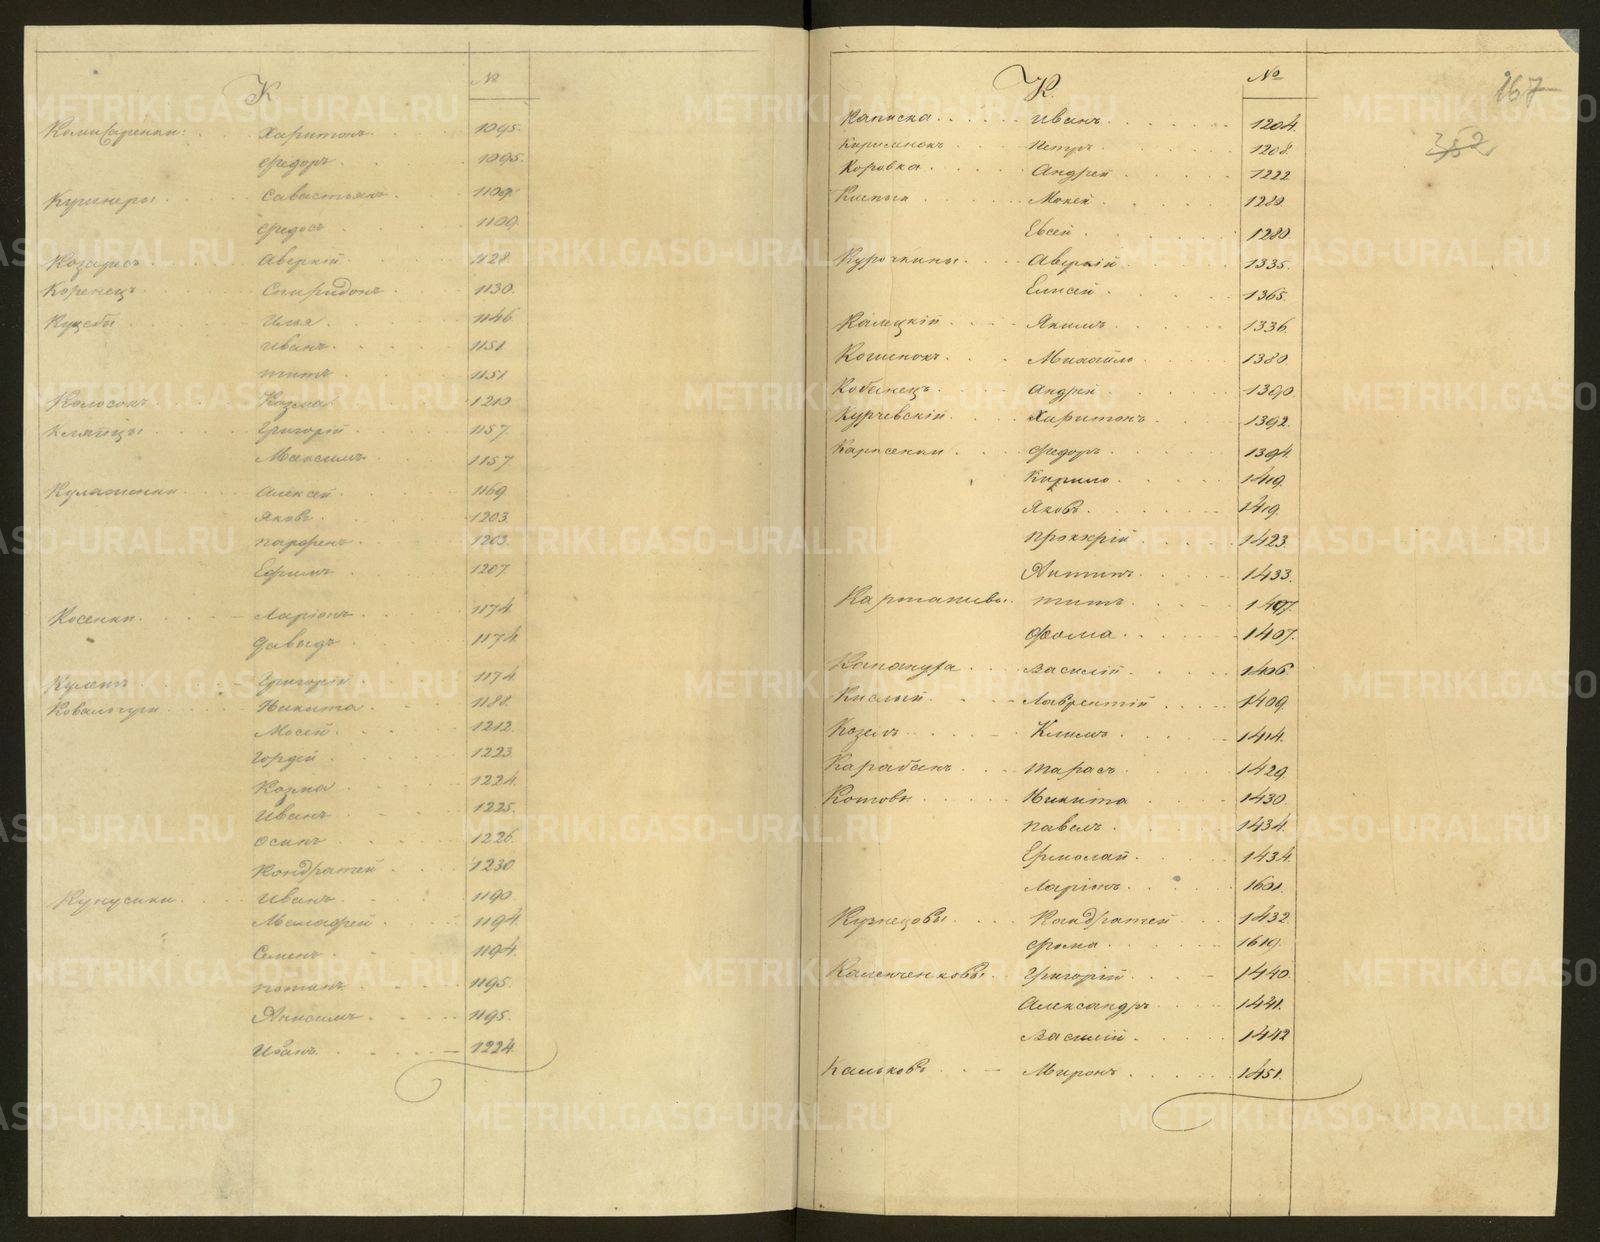 К №
Комисаренки Харитонъ 1095.
Федоръ 1095.
Кушниры Савастьянъ 1109.
Федосъ 1109.
Козарисъ Аверкій 1128.
Коренецъ Спиридонъ 1130.
Куцебы Илья 1146
Иванъ 1151
Титъ 1151
Колосокъ Козма 1210
Григорій 1157
Максимъ 1157
Алексей 1169
Яковъ 1203
Парфенъ 1203
Ефимъ 1207
Косенки Ларіонъ 1174
Давыдъ 1174
Григорій 1174
Ковальчуки Никита 1188
Мосей 1212
Гордей 1223
Козма 1224
Иванъ 1225.
Осипъ 1226
Кондратей 1230
Иванъ 1190
Малафей 1194
Семенъ 1194
Потапъ 1195.
Анисимъ 1195.
Иванъ 1224
К. № 267
352
Каписка Иванъ 1204.
Петръ 1208.
Коровка Андрей 1222
Мокей 1280.
Евсей 1280.
Курочкины Аверкій 1335.
Елисей 1365.
Калецкій Якимъ 1336
Михайло 1380
Кобанецъ Андрей 1390.
Курчевскій Харитонъ 1392.
Карпенки Федоръ 1394.
Кирило 1419.
Яковъ 1419.
Прокофій 1423.
Антипъ 1433.
Карташевы Титъ 1407.
Фома 1407.
Василій 1406.
Кислый Лаврентій 1409.
Козелъ Климъ 1414.
Карабанъ Тарасъ 1429
Котовы Никита 1430
Павелъ 1434
Ермолай 1434.
Ларіонъ 1601.
Кузнецовы Кандратей 1432
Фома 1619.
Каленченковы Григорій 1440.
Александръ 1441.
Василій 1442
Кальковы Миронъ 1451.
METRIKI.GASO-URAL.RU